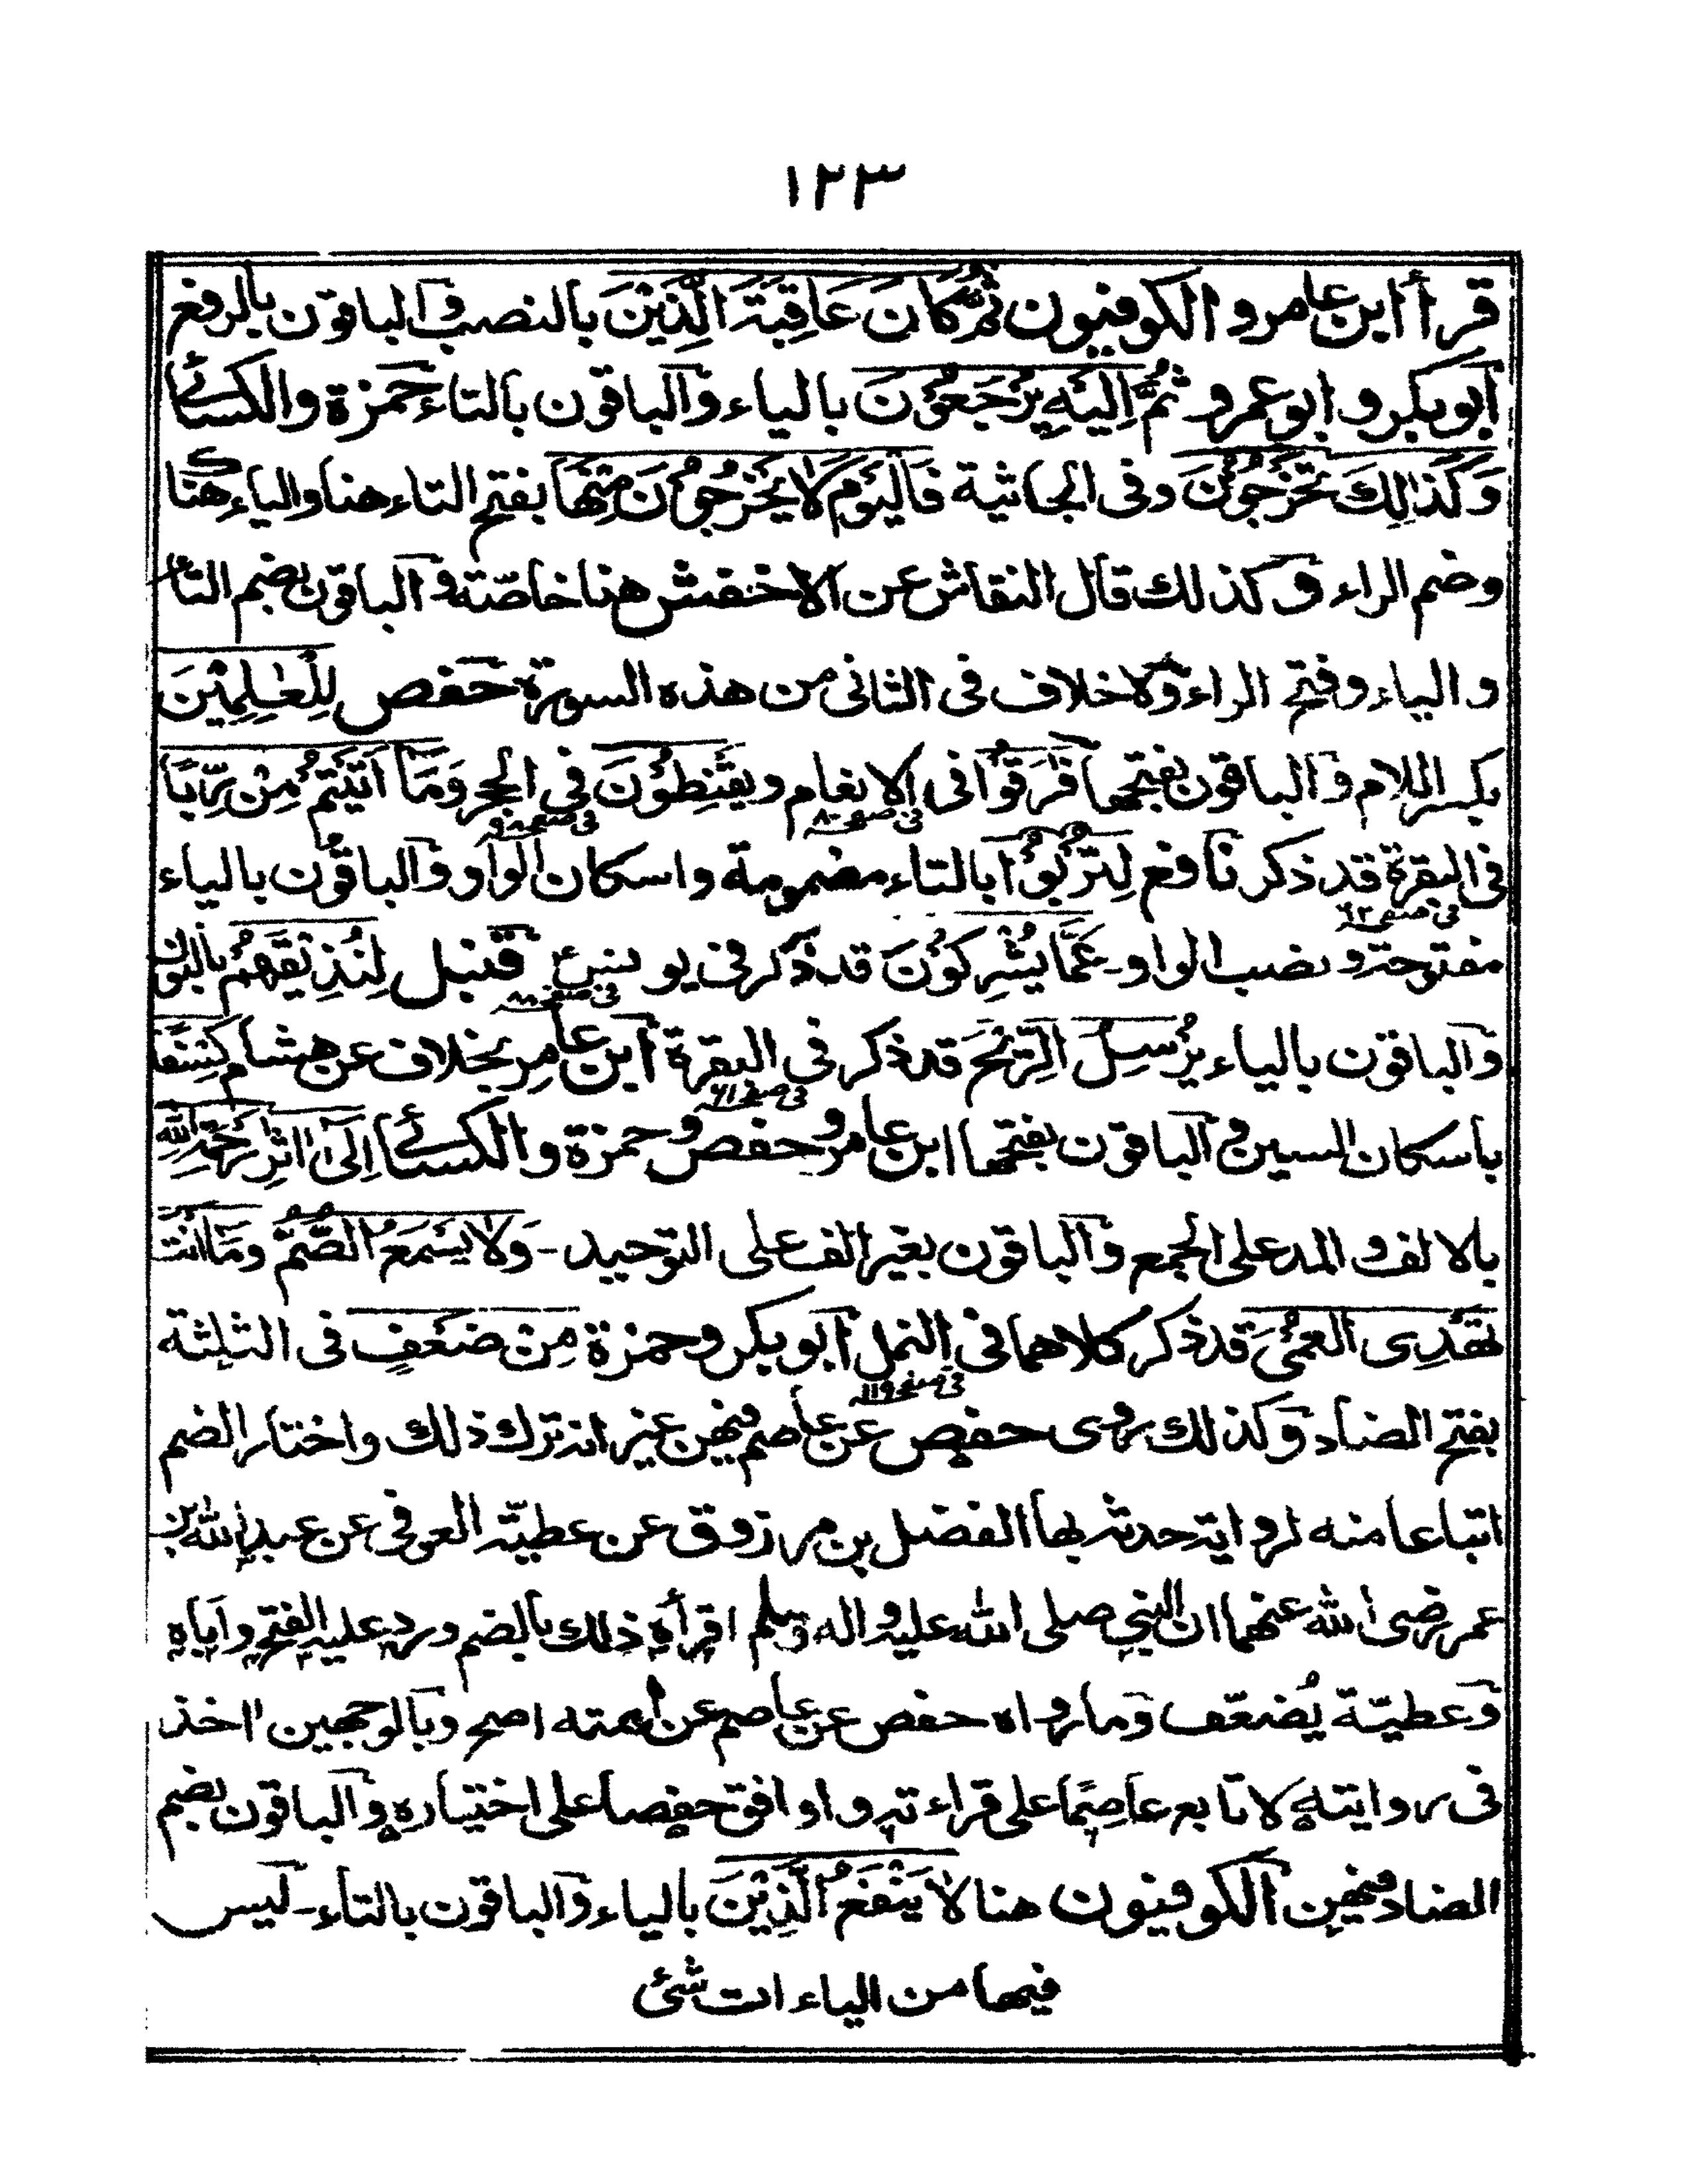 ١٢٣
قرأ ابن عامر و الكوفيون ثُمَّ كَانَ عَاقِبَةَ الَّذِيْنَ بالنصب و الباقون بالرفع
ابو بكر و ابو عمرو ثُمَّ اِلَيْهِ يُرْجَعُوْنَ بالياء و الباقون بالتاء حمزة و الكسائے
وَكَذٰلِكَ تَخْرُجُوْنَ وفى الجاثية فَالْيَوْمَ لَا يَخْرُجُوْنَ مِنْهَا بفتح التاء هنا والياء هناك
وضم الراء و كذلك قال النقاش عن الاخفش هنا خاصّة و الباقون بضم التاء
و الياء و فتح الراء ولا خلاف فى الثانى من هذه السورة حفص لِلْعٰلِمِيْنَ
بكسر اللام و الباقون بفتحها فٰرَقُوْا فى الانعام و يَقْنَطُوْنَ فى الحجر وَمَا اٰتَيْتُمْ مِنْ رِّبًا
فى صفحہ ٨٠ فى صفحہ ٩٨
فى البقرة قد ذكر نافع لِتُرْبُوْا بالتاء مضمومة و اسكان الواو و الباقون بالياء
فى صفحہ ٦٢
مفتوحة و نصب الواو - عَمَّا يُشْرِكُوْنَ قد ذكر فى يونس ع قنبل لِنُذِيْقَهُمْ بالنون
فى صفحہ ٨٨
و الباقون بالياء يُرْسِلُ الرِّيْحَ قد ذكر فى البقرة ابن عامر بخلاف عن هشام كِسْفًا
فى صفحہ ٦١
باسكان السين و الباقون بفتحها ابن عامر و حفص و حمزة و الكسائے اِلٰى اٰثٰرِ رَحْمَةِ اللّٰهِ
بالالف و المد على الجمع و الباقون بغير الف على التوحيد - وَلَا يَسْمَعُ الصُّمُّ وَمَا اَنْتَ
تَهْدِى الْعُمْىَ قد ذكر كلاهما فى النمل ابو بكر و حمزة مِنْ ضَعْفٍ فى الثلثة
فى صفحہ ١١٩
بفتح الضاد و كذلك روى حفص عن عاصم فيهن غير انه ترك ذلك و اختار الضم
اتباعا منه لرواية حدث بها الفضل بن مرزوق عن عطيّة العوفى عن عبد الله بن
عمر رضى الله عنهما ان النبى صلى الله عليه و اله و سلم اقرأه ذلك بالضم و رد عليه الفتح و اباه
و عطيّة يُضعّف و ما رواه حفص عن عاصم عن ايمته اصح و بالوجهين اخذ
فى روايته لا تابع عاصمًا على قراءته و اوافق حفصا على اختياره و الباقون بضم
الضاد فيهن الكوفيون هنا لَا يَنْفَعُ الَّذِيْنَ بالياء و الباقون بالتاء - ليس
فيها من الياءات شئ